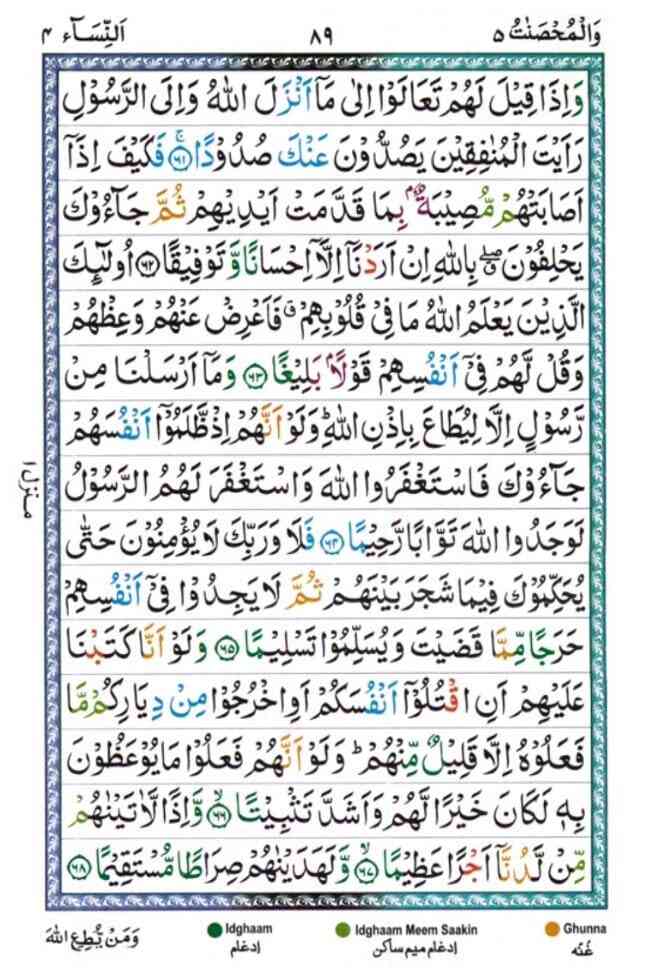 وَالْمُحْصَنٰتُ ۵ ۸۹ اَلنِّسَآء ۴
وَاِذَا قِيْلَ لَهُمْ تَعَالَوْا اِلٰى مَاۤ اَنْزَلَ اللّٰهُ وَاِلَى الرَّسُوْلِ
رَاَيْتَ الْمُنٰفِقِيْنَ يَصُدُّوْنَ عَنْكَ صُدُوْدًا ۚ‏﴿۶۱﴾ فَكَيْفَ اِذَاۤ
اَصَابَتْهُمْ مُّصِيْبَةٌۢ بِمَا قَدَّمَتْ اَيْدِيْهِمْ ثُمَّ جَآءُوْكَ
يَحْلِفُوْنَ ۖ بِاللّٰهِ اِنْ اَرَدْنَاۤ اِلَّاۤ اِحْسَانًا وَّتَوْفِيْقًا ﴿۶۲﴾ اُولٰٓئِكَ
الَّذِيْنَ يَعْلَمُ اللّٰهُ مَا فِيْ قُلُوْبِهِمْ ۗ فَاَعْرِضْ عَنْهُمْ وَعِظْهُمْ
وَقُلْ لَّهُمْ فِيْۤ اَنْفُسِهِمْ قَوْلًاۢ بَلِيْغًا ﴿۶۳﴾ وَمَاۤ اَرْسَلْنَا مِنْ
رَّسُوْلٍ اِلَّا لِيُطَاعَ بِاِذْنِ اللّٰهِ ؕ وَلَوْ اَنَّهُمْ اِذْ ظَّلَمُوْۤا اَنْفُسَهُمْ
جَآءُوْكَ فَاسْتَغْفَرُوا اللّٰهَ وَاسْتَغْفَرَ لَهُمُ الرَّسُوْلُ
لَوَجَدُوا اللّٰهَ تَوَّابًا رَّحِيْمًا ﴿۶۴﴾ فَلَا وَرَبِّكَ لَا يُؤْمِنُوْنَ حَتّٰى
يُحَكِّمُوْكَ فِيْمَا شَجَرَ بَيْنَهُمْ ثُمَّ لَا يَجِدُوْا فِيْۤ اَنْفُسِهِمْ
حَرَجًا مِّمَّا قَضَيْتَ وَيُسَلِّمُوْا تَسْلِيْمًا ﴿۶۵﴾ وَلَوْ اَنَّا كَتَبْنَا
عَلَيْهِمْ اَنِ اقْتُلُوْۤا اَنْفُسَكُمْ اَوِ اخْرُجُوْا مِنْ دِيَارِكُمْ مَّا
فَعَلُوْهُ اِلَّا قَلِيْلٌ مِّنْهُمْ ؕ وَلَوْ اَنَّهُمْ فَعَلُوْا مَا يُوْعَظُوْنَ
بِهٖ لَكَانَ خَيْرًا لَّهُمْ وَاَشَدَّ تَثْبِيْتًا ۙ‏﴿۶۶﴾ وَّاِذًا لَّاٰتَيْنٰهُمْ
مِّنْ لَّدُنَّاۤ اَجْرًا عَظِيْمًا ۙ‏﴿۶۷﴾ وَّلَهَدَيْنٰهُمْ صِرَاطًا مُّسْتَقِيْمًا ﴿۶۸﴾
منزل ۱
Idghaam Idghaam Meem Saakin Ghunna
وَمَنْ يُّطِعِ اللّٰهَ ادغام ادغام میم ساکن غُنّه